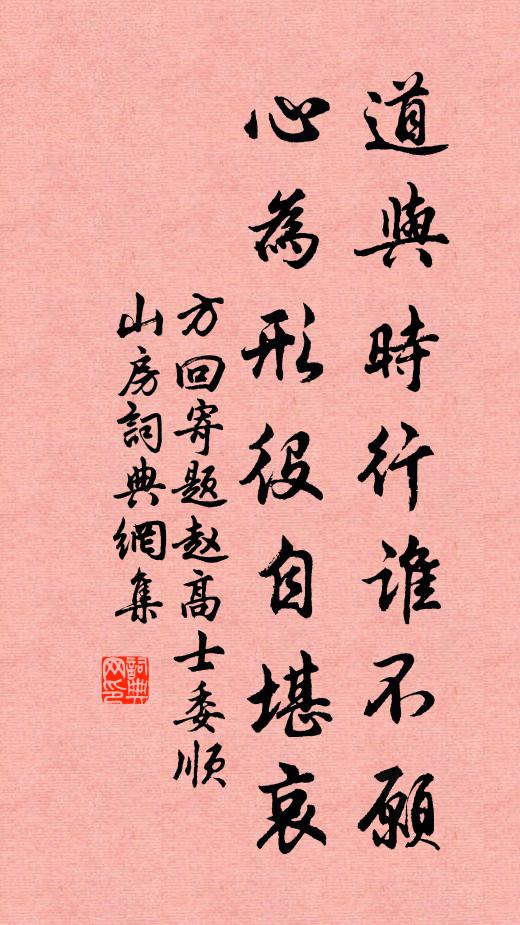 道與時行誰不願
心為形役自堪哀
方回寄題赵高士委顺
山房詞典網集
詞典
网印